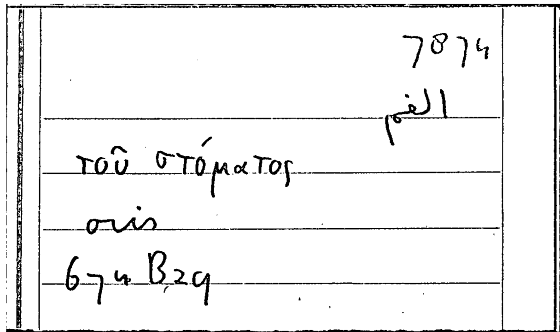 7874
الفم
τοῦ στόματος
oris
674 B 29